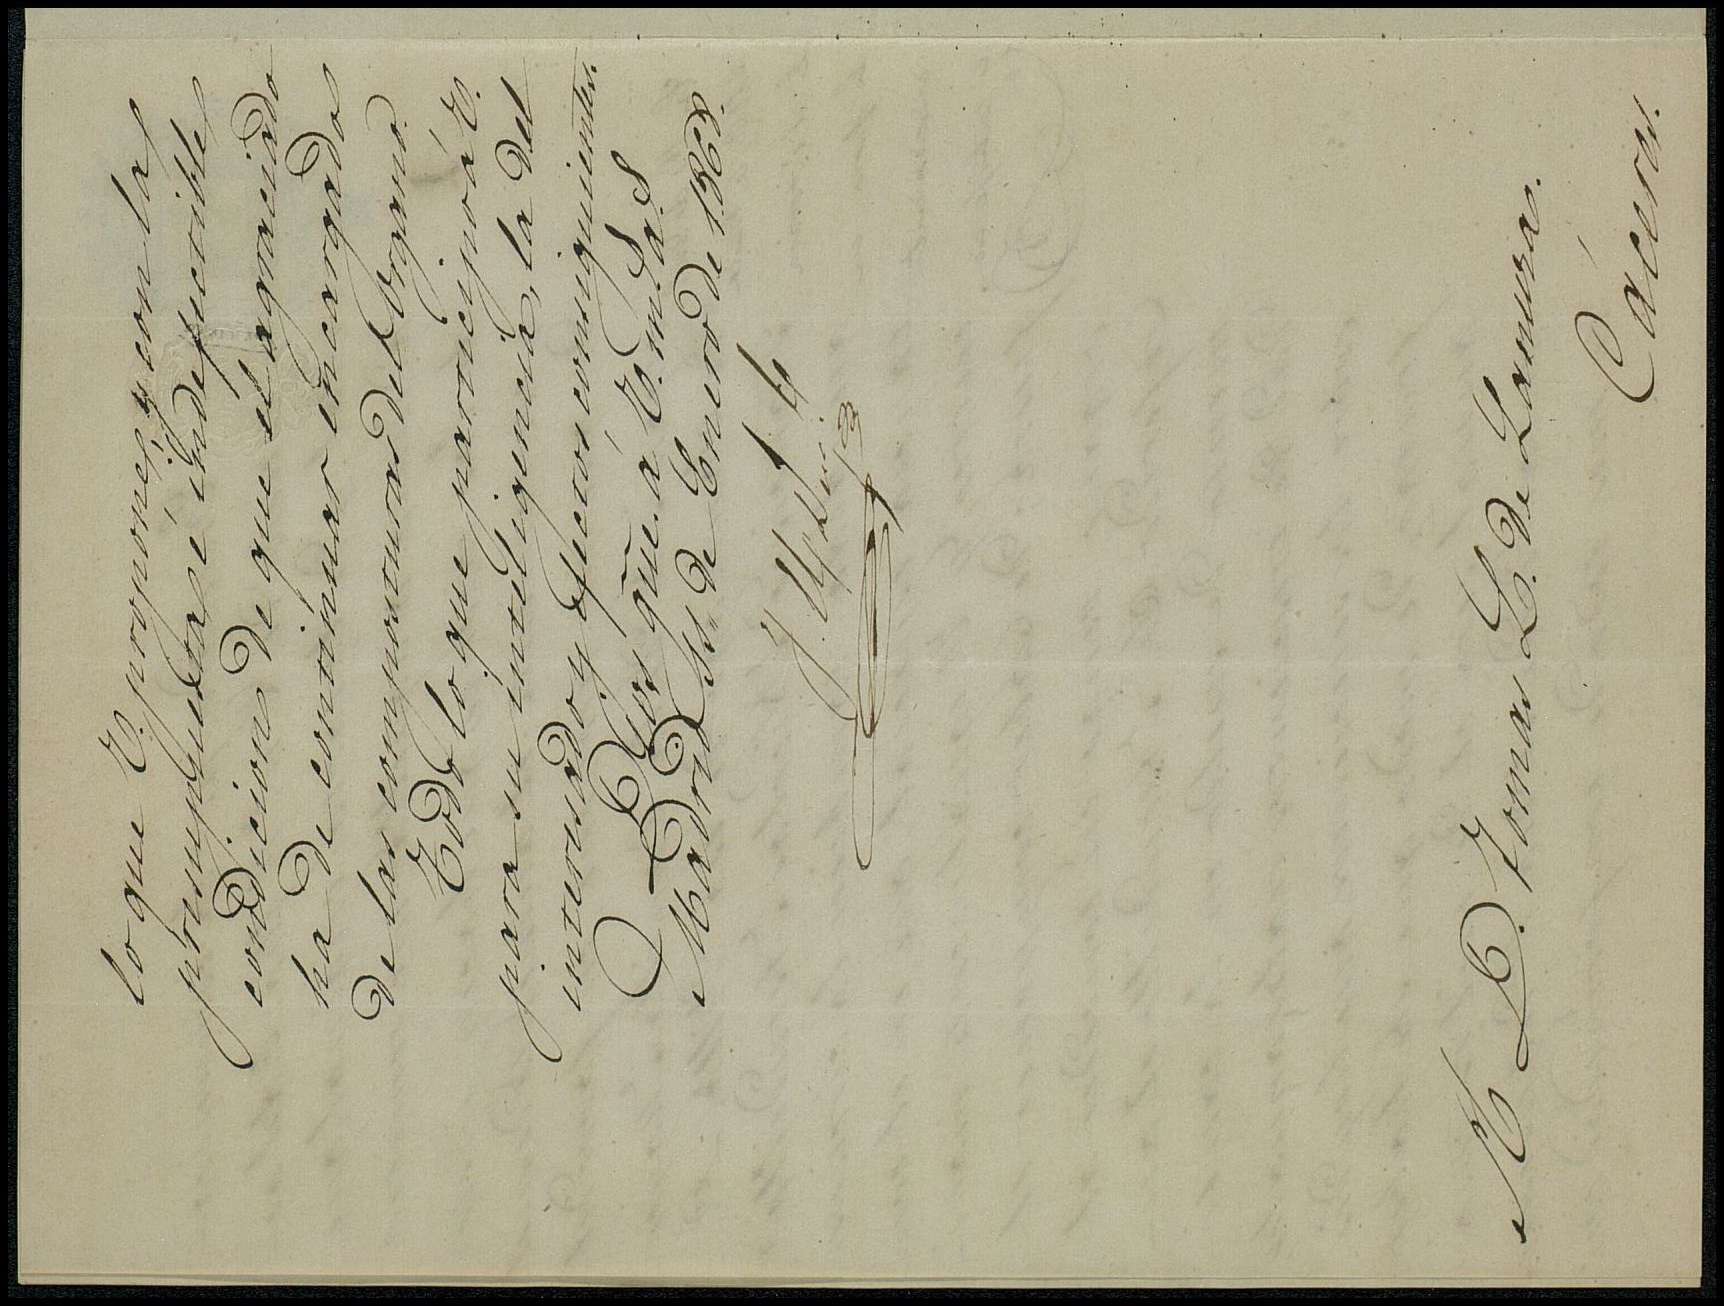 lo que V. propone; y con la
precisa é indefectible
condicion de que el agraciado
ha de continuar encargado
de las composturas del Organo.
Todo lo que participo á V.
para su inteligencia, la del
interesado y efectos consiguientes.
Dios gũe. á V. m.s a.s
Madrid de Enero de 1868.
S.r D. Tomas L. de Lamura.
Cáceres.